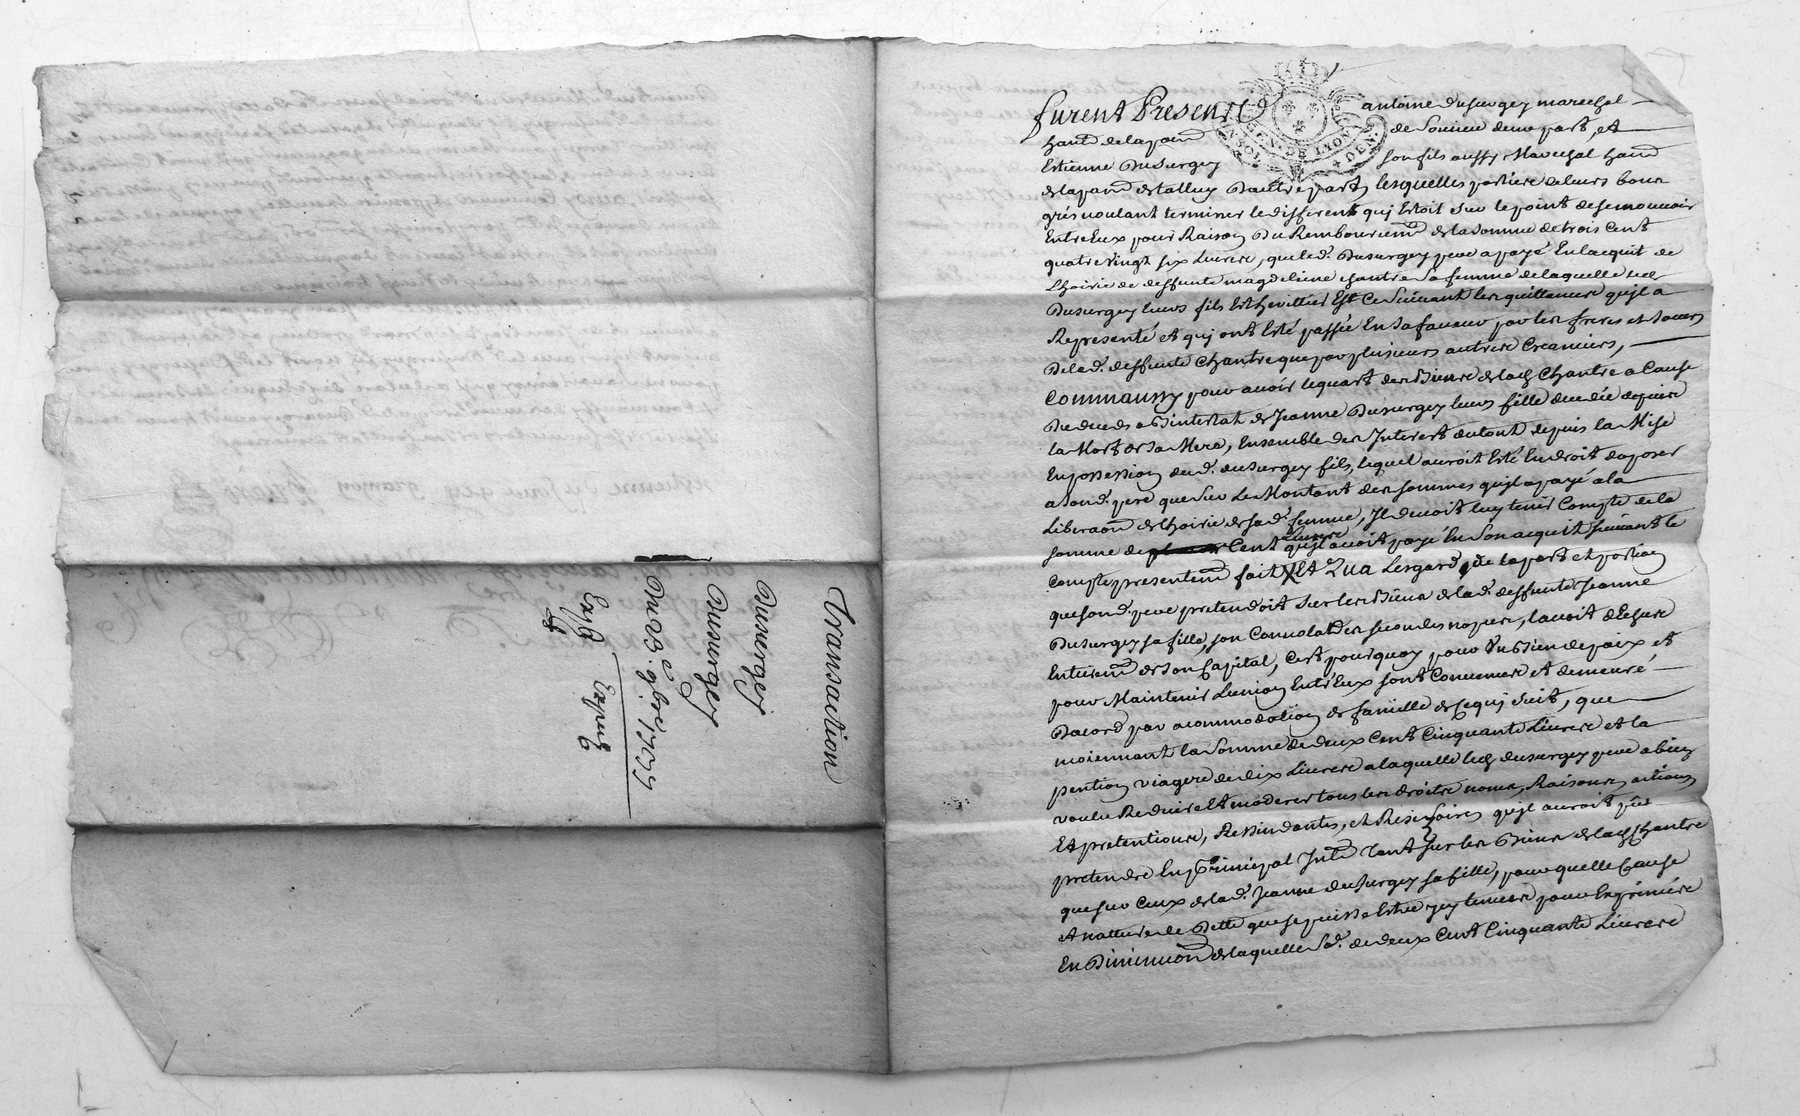 Transaction
Dusurgey
Dusurgey
Du 23.e 9.bre 1757
Exp.é
GEN. DE LYON
furent Presents antoine dusurgey marechal
hant de la par de Sourcieu d'une part, et
Estienne Dusurgey son fils aussy Marechal hant
de la par de talluy D'autre part, lesquelles parties de leurs bons
grés voulant terminer le different qui Estoit sur le point de se mouvoir
Entre Eux pour Raison Du Remboursemt de la somme de trois Cent
quatre vingt six Livres, que led. Dusurgey pere a payé En lacquit de
Lhoirie de deffunte magdeleine chantre sa femme de laquelle led
Dusurgey leurs fils Est hereittier Est Ce Suivant les quittances qu'jl a
Representé et qui ont Esté passée En sa faveur par les freres et soeurs
De lad. deffunte Chantre que par plusieurs autres Creanciers,
Comm aussy pour avoir le quart des Biens de lad Chantre a Cause
Du deceds ab intestat de Jeanne Dusurgey leurs fille decedée depuis
la Mort de sa Mere, Ensemble des Interest du tout depuis la Mise
En possession dud. dusurgey fils, lequel auroit Esté En droit doposer
a sond. pere que sur Le Montant des sommes qu'jl a payé a la
Liberaon de Lhoirie de sad. femme, Jl devoit luy tenir Compte de la
somme de Cent Livres qu'jl avoit payé En son acquit suivant le
Compte presentemt fait Et Qua Lesgard de la part et portion
que sond. pere pretendoit sur les Biens de lad. deffunte Jeanne
Dusurgey sa fille, son Convolat des secondes nopces, lavoit
Entieremt de son Capital, C'est pourquoy pour Un Bien de paix et
pour Maintenir Lunion Entr'Eux sont Convenus et demeuré
Dacord par acommodation de famille de Ce qui suit, que
moiennant la Somme de deux Cent Cinquante Livres et la
pention viagere de dix Livres a laquelle led dusurgey pere a bien
voulu Reduire Et moderer tous les droits noms, Raisons, actions
Et pretentions, Ressindants, et Resisoires qu'jl auroit pû
pretendre En Principal Intt tant sur les Biens de lad Chantre
que sur Ceux de lad. Jeanne dusurgey sa fille, pour quelle Cause
et nature de Dette que se puisse Estre
En Diminuon de laquelle Sd. de deux Cent Cinquante Livres